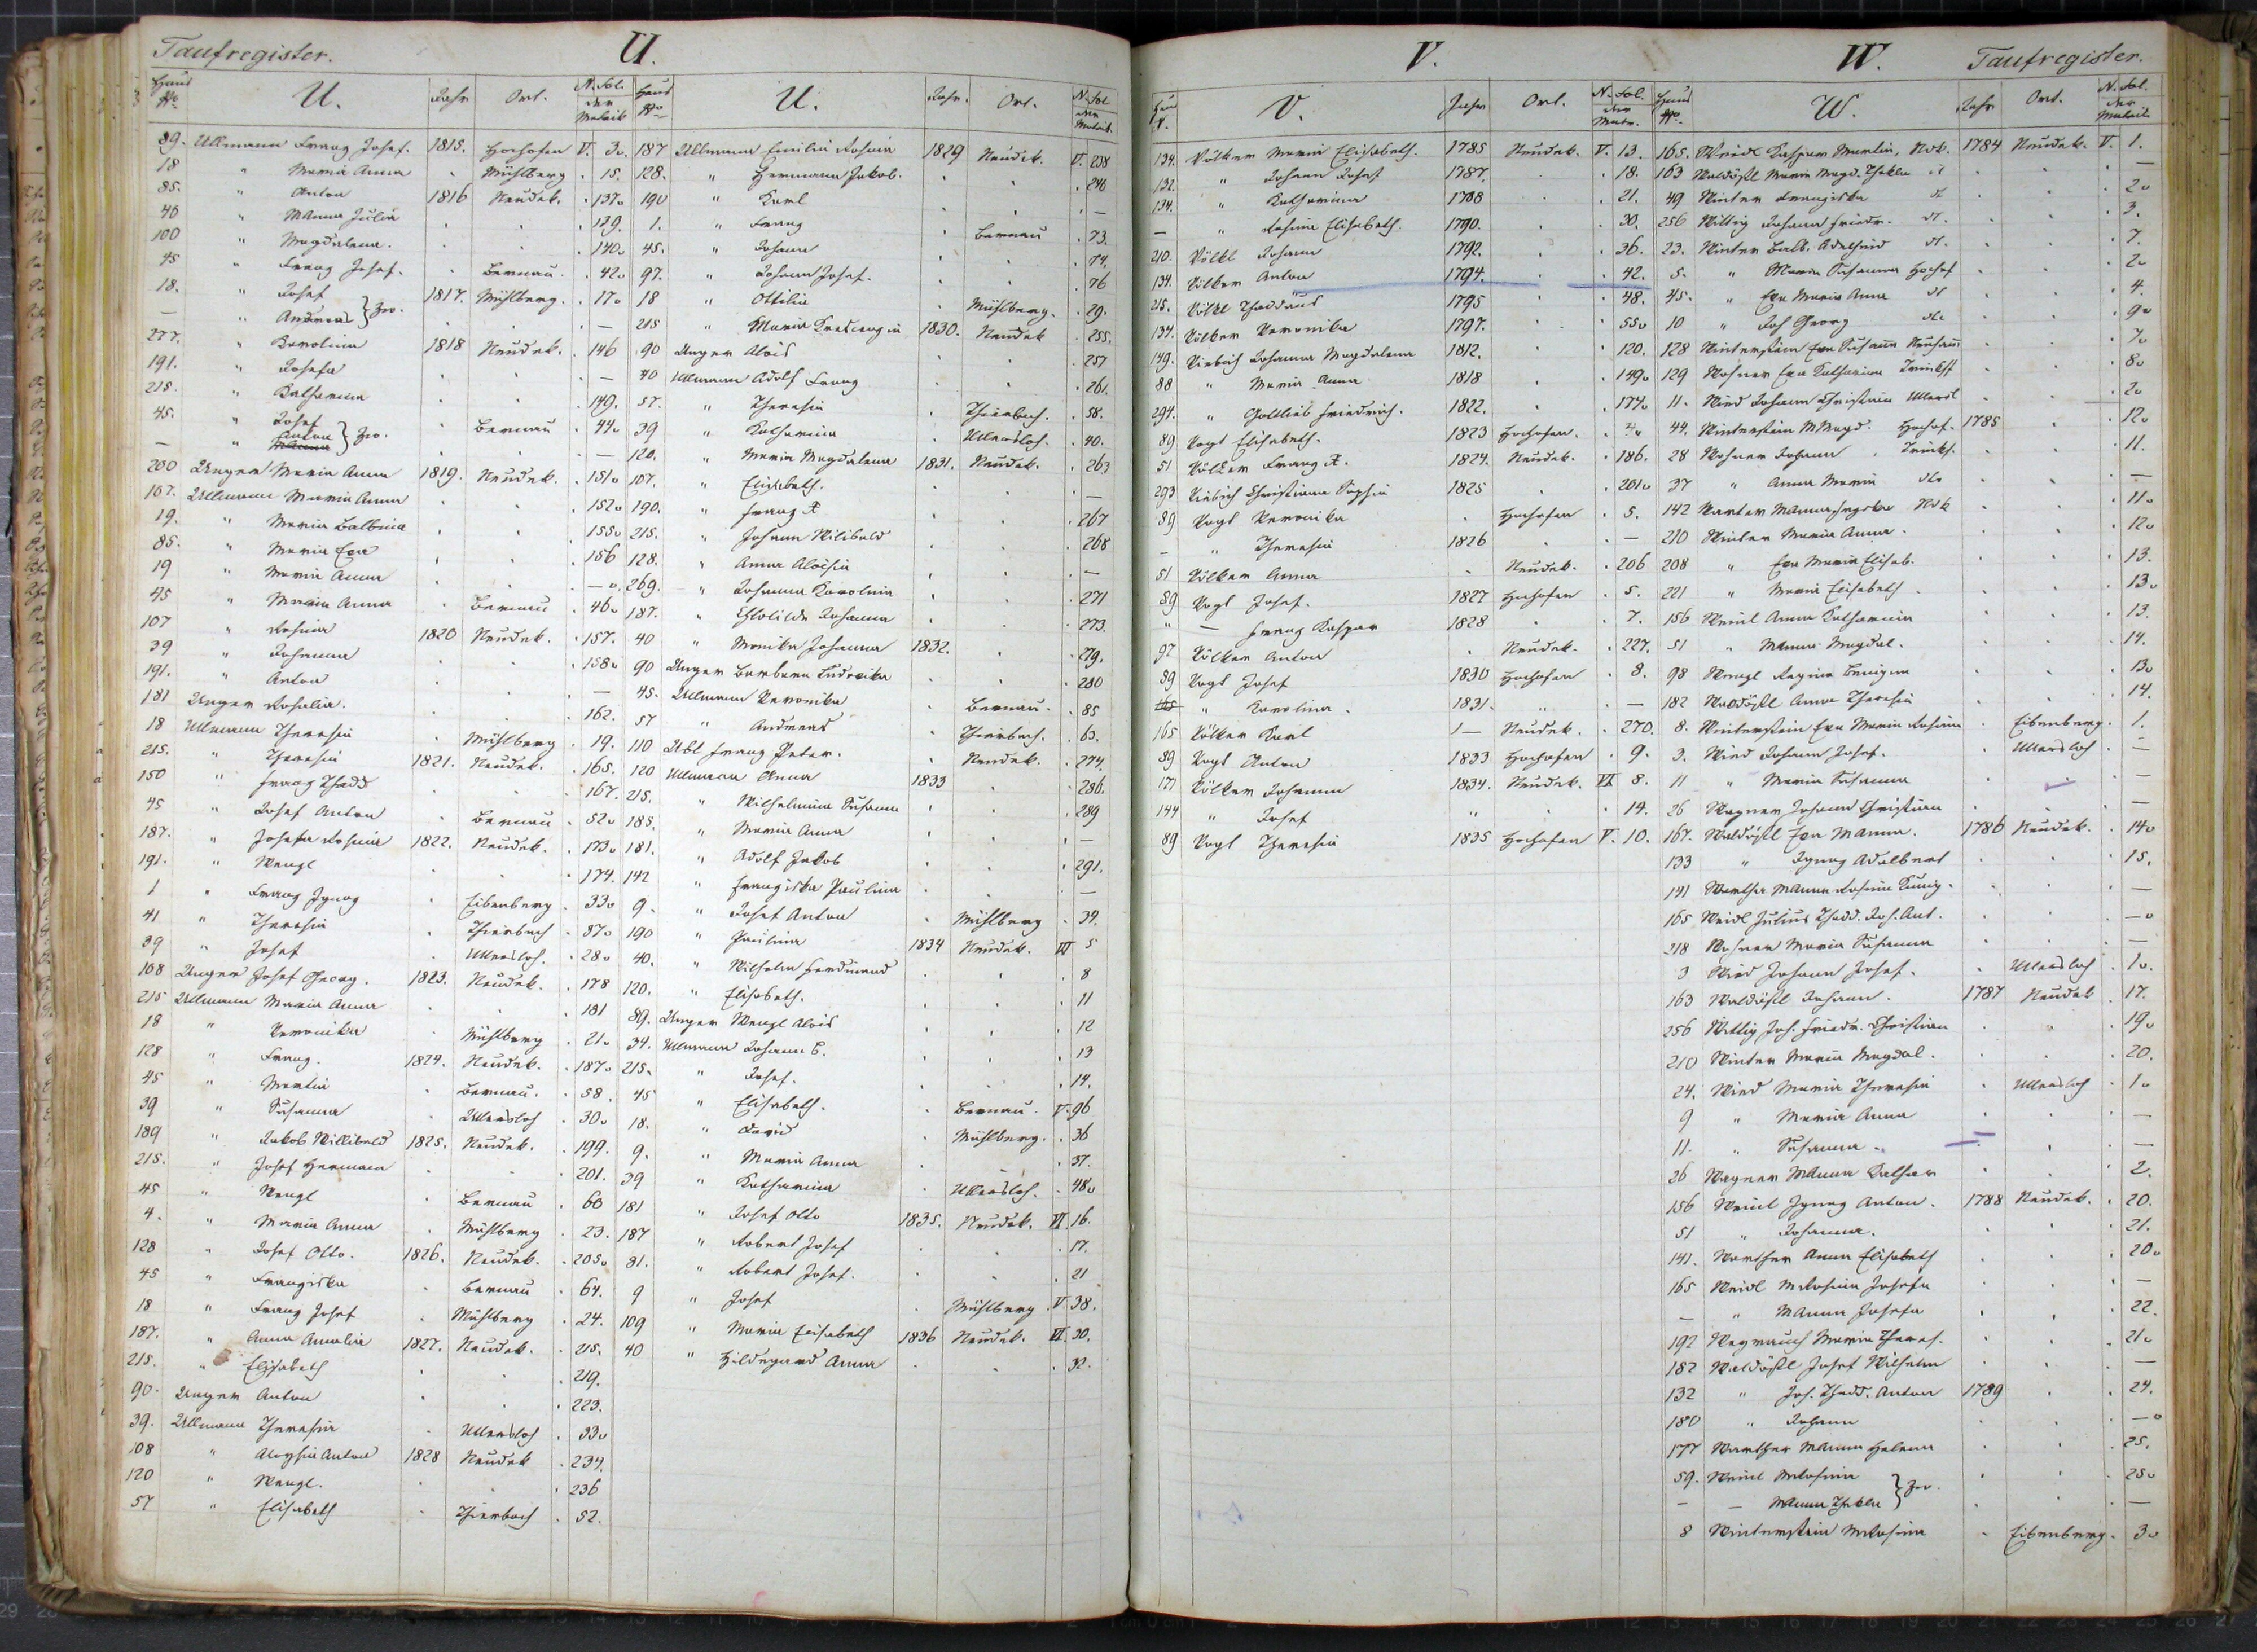 Taufregister. U.
Haus No U. Jahr Ort. N. Fol. der Matrik
89. Ullmann Franz Josef. 1815. Hochofen V. 3.
18 " Maria Anna " Mühlberg . 15.
85. " Anton 1816 Neudek. . 137.
40 " MAnna Julia . . . 139.
100 " Magdalena. . . . 140.
45 " Franz Josef. . Bernau. . 42.
18. " Josef } Zw. 1817. Mühlberg. . 17.
— " Andreas . . —
277. " Karolina 1818 Neudek. . 146
191. " Josefa . . . —
215. " Katharina . . . 149.
45. " Josef } Zw. . Bernau . 44.
— " Anton . . . —
200 Unger Maria Anna 1819. Neudek. . 151.
107. Ullmann Maria Anna . . . 152.
19. " Maria Balbina . . . 155.
85. " Maria Eva . . . 156
19 " Maria Anna . . . —
45 " Maria Anna . Bernau . 46.
107 " Rosina 1820 Neudek. . 157.
39 " Johanna . . . 158.
191. " Anton . . . —
181 Unger Rosalia. . . . 162.
18 Ullmann Theresia . Mühlberg . 19.
215. " Theresia 1821. Neudek. . 165.
150 " Franz Thadd . . . 167.
45 " Josef Anton . Bernau . 52.
187. " Josefa Rosina 1822. Neudek. . 173.
191. " Wenzl . . . 174.
1 " Franz Ignaz . Eibenberg . 33.
41 " Theresia . Thierbach . 37.
39 " Josef . Ullersloh. . 28.
108 Unger Josef Georg. 1823. Neudek. . 178
215 Ullmann Maria Anna . . . 181
18 " Veronika . Mühlberg . 21.
128 " Franz. 1824. Neudek. . 187.
45 " Martin . Bernau. . 58.
39 " Susanna . Ullersloh . 30.
189 " Jakob Willibald 1825. Neudek. . 199.
215. " Josef Hermann . . . 201.
45 " Wenzl . Bernau . 60
4. " Maria Anna . Mühlberg . 23.
128 " Josef Otto. 1826. Neudek. . 205.
45 " Franziska . Bernau . 64.
18 " Franz Josef . Mühlberg . 24.
187. " Anna Amalia 1827. Neudek. . 215.
215. " Elisabeth . . . 219.
90. Unger Anton . . . 223.
39. Ullmann Theresia . Ullersloh . 33.
108 " Aloysia Anton 1828 Neudek . 234.
120 " Wenzl. . . . 236
57 " Elisabeth . Thierbach . 52.
Haus No U. Jahr. Ort. N. Fol der Matrik.
187 Ullmann Emilia Rosina 1829 Neudek. V. 238
128. " Hermann Jakob. . . . 246
190 " Karl . . . —
1. " Franz . Bernau . 73.
45. " Johann . . . 74.
97. " Johann Josef. . . . 76
18 " Ottilia . Mühlberg. . 29.
215 " Maria Kreszenzia 1830. Neudek . 255.
90 Unger Alois . . . 257
40 Ullmann Adolf Franz . . . 261.
57. " Theresia . Thierbach. . 58.
39 " Katharina . Ullersloh. . 40.
120. " Maria Magdalena 1831. Neudek. . 263
107. " Elisabeth. . . . —
190. " Franz X . . . 267
215. " Johann Wilibald . . . 268
128. " Anna Aloisia . . . —
269. " Johanna Karolina . . . 271
187. " Chlotilde Johanna . . . 273.
40 " Monika Johanna 1832. . . 279.
90 Unger Barbara Ludovika . . . 280
45. Ullmann Veronika . Bernau. . 85
57 " Andreas . Thierbach. . 63.
110 Ubl Franz Peter. . Neudek. . 274.
120 Ullmann Anna 1833 . . 286.
215. " Wilhelmina Susanna . . . 289
185. " Maria Anna . . . —
181. " Adolf Jakob . . . 291.
142 " Franziska Paulina . . . —
9. " Josef Anton . Mühlberg . 34.
190 " Paulina 1834 Neudek. VI 5
40. " Wilhelm Ferdinand . . . 8
120. " Elisabeth. . . . 11
89. Unger Wenzl Alois . . . 12
34. Ullmann Johann B. . . . 13
215. " Josef. . . . 14.
45 " Elisabeth. . Bernau. V. 96
18. " David . Mühlberg. . 36
9. " Maria Anna . . . 37.
39 " Katharina . Ullersloh. . 48.
181 " Josef Otto 1835. Neudek. VI. 16.
187 " Robert Josef . . . 17.
81. " Robert Josef. . . . 21
9 " Josef . Mühlberg . V 38.
109 " Maria Elisabeth 1836 Neudek. VI. 30.
40 " Hildegard Anna . . . 32.
V.
V. Jahr Ort. N. Fol. der Matr.
134. Völker Maria Elisabeth. 1785 Neudek. V. 13.
132. " Johann Josef 1787. . . 18.
134. " Katharina 1788 . . 21.
— " Rosina Elisabeth. 1790. . . 30.
210. Völkl Johann 1792. . . 36.
134. Völker Anton 1794. . . 42.
215. Völkl Thaddäus 1795 . . 48.
134. Völker Veronika 1797. . . 55.
149. Viebich Johanna Magdalena 1812. . . 120.
88 " Maria Anna 1818 . . 149.
294. " Gottlieb Friedrich. 1822. . . 174.
89 Vogl Elisabeth. 1823 Hochofen.
51 Völker Franz X. 1824. Neudek. . 186.
293 Viebich Christiana Sophia 1825 . . 201.
89 Vogl Veronika . Hochofen . 5.
— " Theresia 1826 . . —
51 Völker Anna . Neudek. . 206
89 Vogl Josef. 1827 Hochofen . 5.
" — Franz Kaspar 1828 . . 7.
97 Völker Anton . Neudek. . 227.
89 Vogl Josef 1830 Hochofen . 8.
165 " Karolina. 1831. " . —
165 Völker Karl 1— Neudek. . 270.
89 Vogl Anton 1833 Hochofen . 9.
171 Völker Johanna 1834. Neudek. VI 8.
144 " Josef " . . 14.
89 Vogl Theresia 1835 Hochofen V. 10.
W. Taufregister.
Haus No. W. Jahr Ort. N. Fol. der Matrik
165. Weidl Kaspar Martin, Ndk. 1784 Neudek. V. 1.
163 Waldößl Maria Magd. Thekla dt . . . —
49 Winter Franziska dt . . . 2.
256 Wittig Johann Friedr. dt. . . . 3.
23. Winter Balb. Adelheid dt. . . . 7.
5. " Maria Susanna Hochof . . . 2.
45. " Eva Maria Anna dt . . . 4.
10 " Joh Georg dto . . . 9.
128 Winterstein Eva Susanna . . . 7.
129 Wohner Eva Katharina . . . 8.
11. Wied Johann Christian Ullersl . . . 2.
44. Winterstein MMagd. Hochof. 1785 . . 12.
28 Wohner Johann . . . 11.
37 " Anna Maria dto . . . —
142 . . . 11.
210 Winter Maria Anna. . . . 12.
208 " Eva Maria Elisab. . . . 13.
221 " Maria Elisabeth . . . 13.
156 Weinl Anna Katharina . . . 13.
51 " MAnna Magdal. . . . 14.
98 Wenzl Regina Benigna . . . 13.
182 Waldößl Anna Theresia . . . 14.
8. Winterstein Eva Maria Rosina . Eibenberg. . 1.
3. Wied Johann Josef. . Ullersloh . —
11 " Maria Susanna . . . —
26 Wagner Johann Christian . . . —
167. Waldößl Eva MAnna. 1786 Neudek. . 14.
133 " Ignaz Adalbert . . . 15.
141 Werther MAnna Rosina Kunig. . . . —
165 Weidl Julius Thadd. Joh. Ant. . . . —
218 Wohner Maria Susanna . . . —
3 Wied Johann Josef. . Ullersloh . 1.
163 Waldößl Johann. 1787 Neudek . 17.
256 Wittig Joh. Friedr. Christian . " . 19.
210 Winter Maria Magdal. . . . 20.
24. Wied Maria Theresia . Ullersloh . 1.
9 " Maria Anna . . . —
11. " Susanna . . . —
26 Wagner MAnna Kathar . . . 2.
156 Weinl Ignaz Anton. 1788 Neudek. . 20.
51 " Johanna. . . . 21.
141. Werther Anna Elisabeth . . . 20.
165 Weidl MRosina Josefa . . . —
— " MAnna Josefa . . . 22.
192 Weyrauch Maria Theres. . . . 21.
182 Waldößl Josef Wilhelm . . . —
132 " Joh. Thadd. Anton 1789 . . 24.
180 " Johann . . . —
177 Werther MAnna Helena . . . 25.
59. Weinl MRosina } Zw. . . . 25.
— — MAnna Thekla . . . —
8 Winterstein MRosina . Eibenberg. . 3.